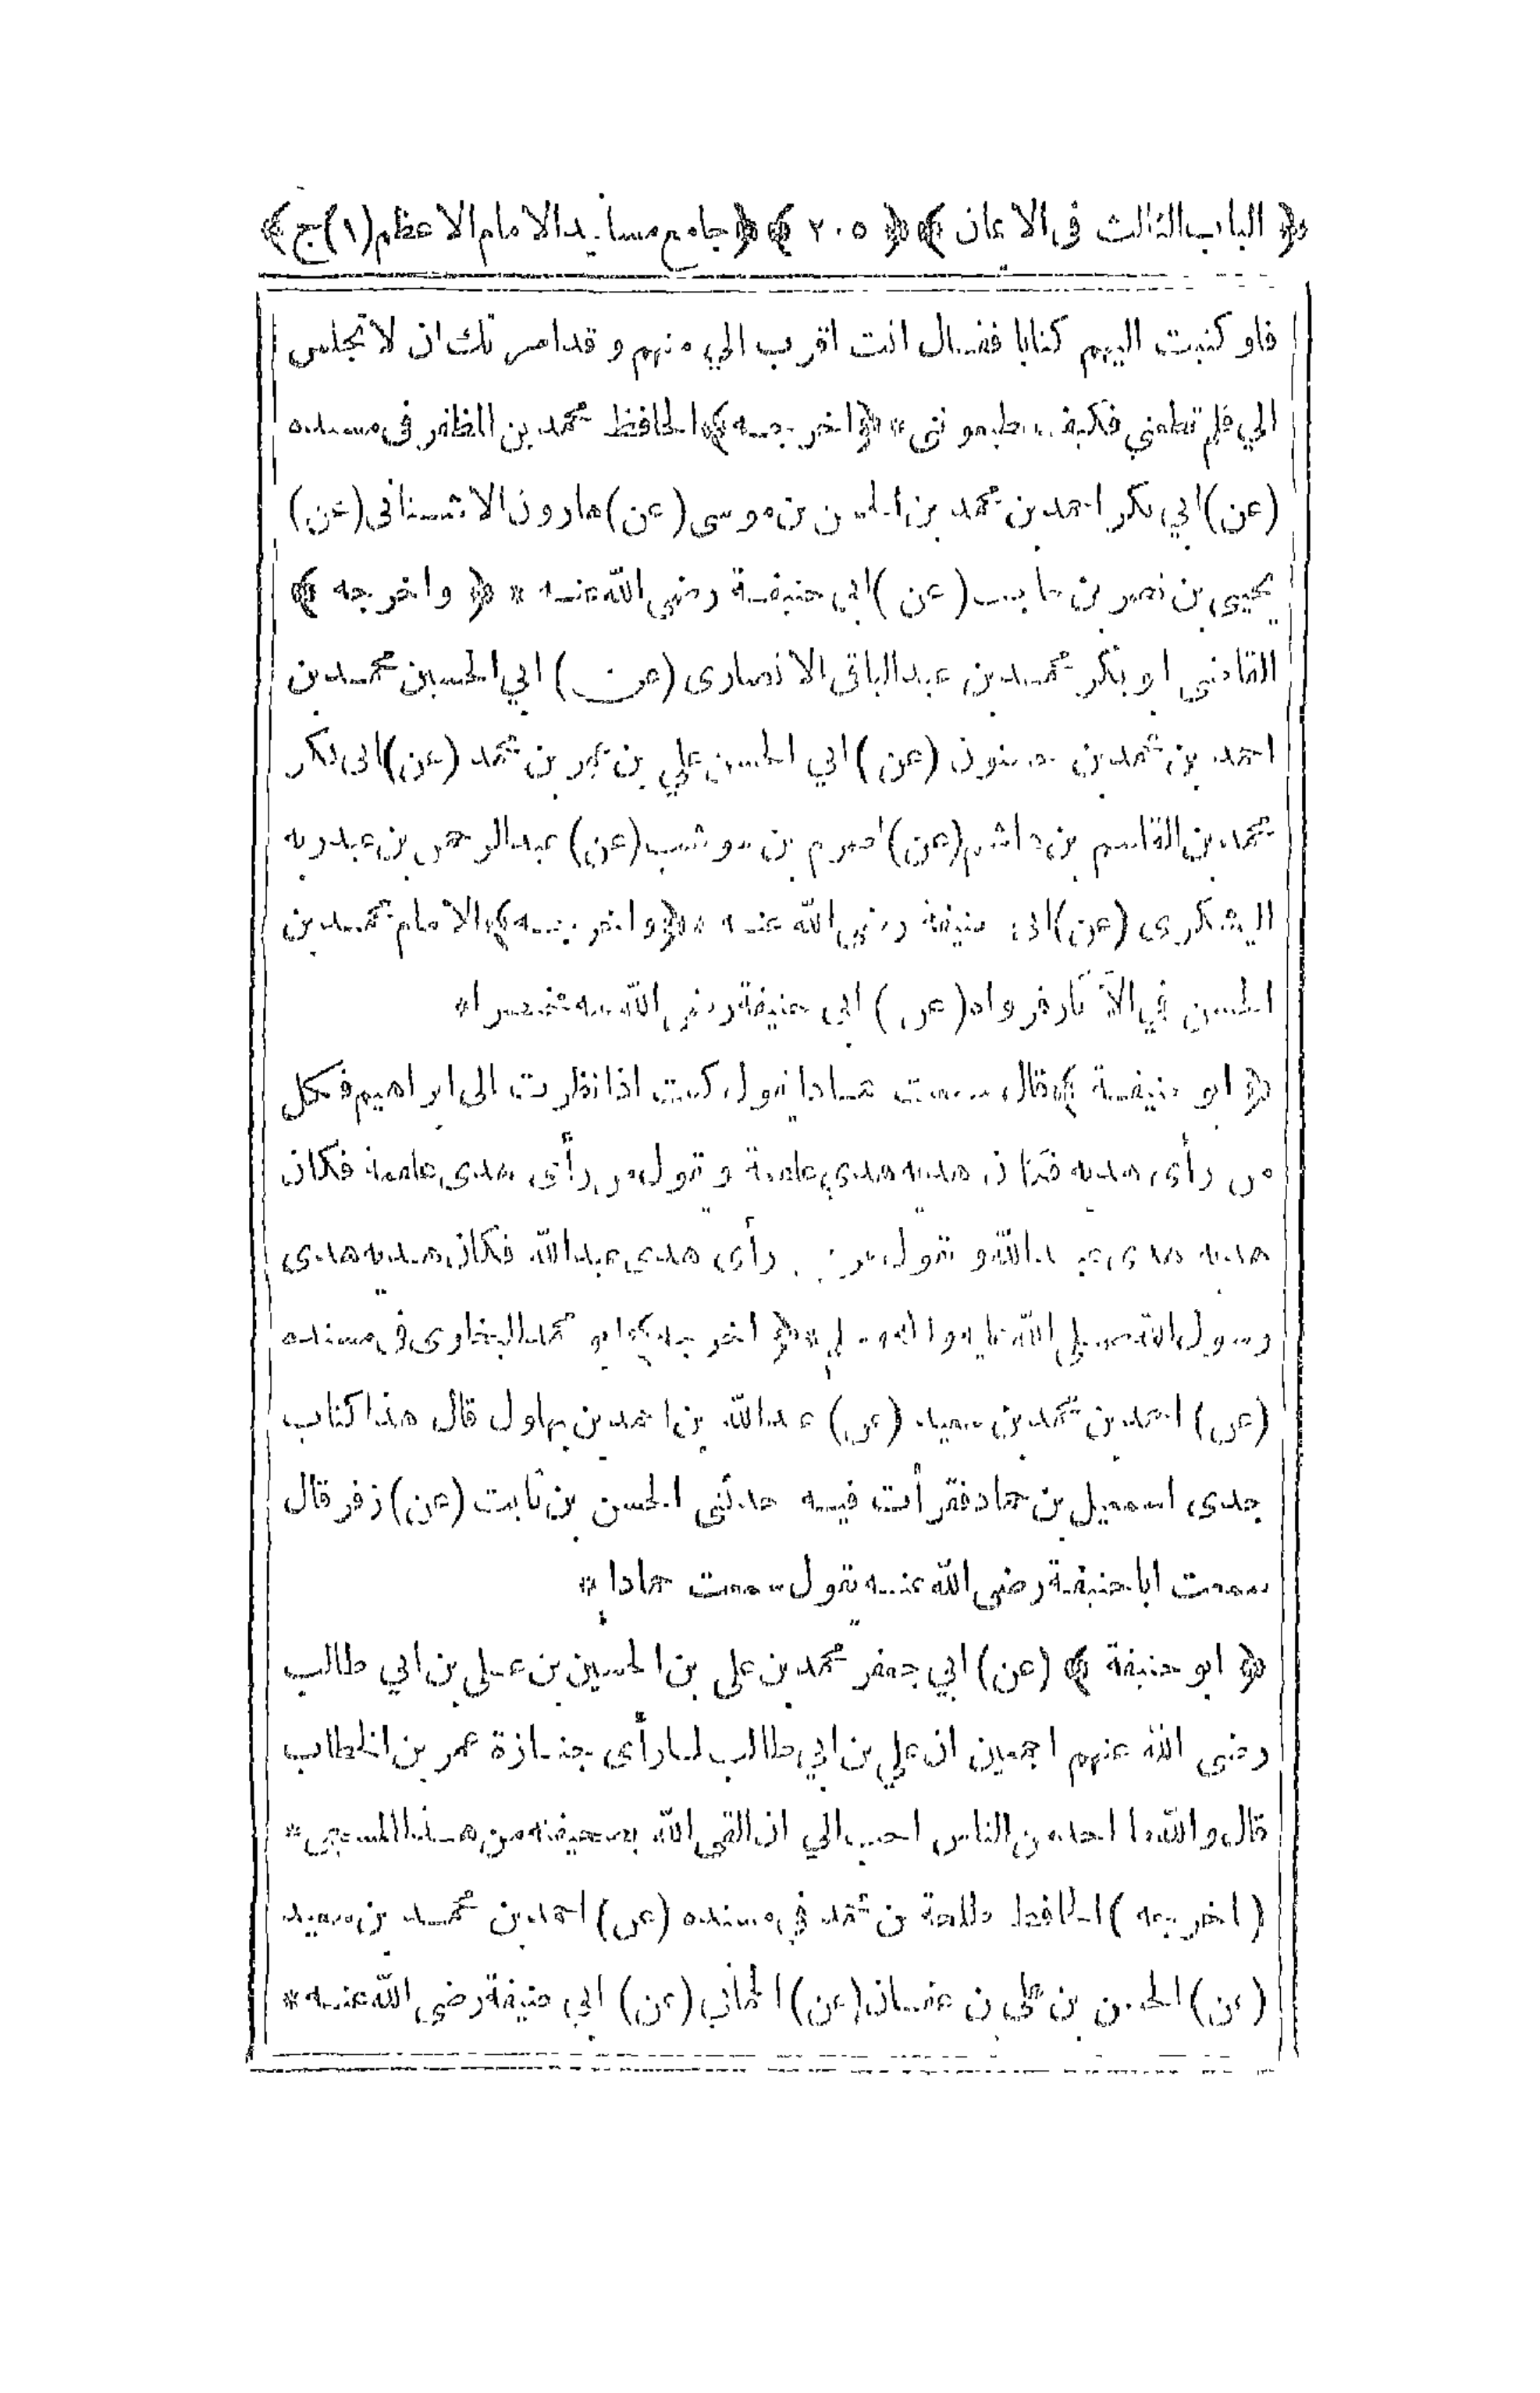 ﴿ الباب الثالث فى الايمان ﴾ ﴿ ٢٠٥ ﴾ ﴿ جامع مسانيد الامام الاعظم (١) ج ﴾
فلو كتبت اليهم كتابا فقال انت اقرب الي منهم وقد امرتك ان لا تجلس
الي فلم تطعني فكيف يطيعونني * ﴿ اخرجه ﴾ الحافظ محمد بن المظفر فى مسنده
(عن) ابي بكر احمد بن محمد بن الحسن بن موسى (عن) هارون الاشنانى (عن)
يحيى بن نصر بن حاجب (عن) ابى حنيفة رضى الله عنه * ﴿ واخرجه ﴾
القاضى ابو بكر محمد بن عبد الباقى الانصارى (عن) ابي الحسين محمد بن
احمد بن محمد بن حسنون (عن) ابي الحسن علي بن عمر بن محمد (عن) ابى بكر
محمد بن القاسم بن هاشم (عن) بن حوشب (عن) عبد الرحمن بن عبد ربه
اليشكرى (عن) ابى حنيفة رضى الله عنه * ﴿ واخرجه ﴾ الامام محمد بن
الحسن في الآثار فرواه (عن) ابى حنيفة رضى الله عنه مختصرا *
﴿ ابو حنيفة ﴾ قال سمعت حمادا يقول كنت اذا نظرت الى ابراهيم فكل
من رأى هديه فكان هديه هدي علقمة ويقول من رأى هدى علقمة فكان
هديه هدى عبد الله ويقول من رأى هدى عبد الله فكان هديه هدى
رسول الله صلى الله عليه وآله وسلم * ﴿ اخرجه ﴾ ابو محمد البخارى فى مسنده
(عن) احمد بن محمد بن سعيد (عن) عبد الله بن احمد بن بهلول قال هذا كتاب
جدى اسمعيل بن حماد فقرأت فيه حدثنى الحسن بن ثابت (عن) زفر قال
سمعت ابا حنيفة رضى الله عنه يقول سمعت حمادا *
﴿ ابو حنيفة ﴾ (عن) ابي جعفر محمد بن على بن الحسين بن على بن ابي طالب
رضى الله عنهم اجمعين ان علي بن ابي طالب لما رأى جنازة عمر بن الخطاب
قال والله ما احد من الناس احب الي ان القى الله بصحيفته من هذا المسجى *
(اخرجه) الحافظ طلحة بن محمد في مسنده (عن) احمد بن محمد بن سعيد
(عن) الحسن بن على بن عفان (عن) الحمانى (عن) ابى حنيفة رضى الله عنه *